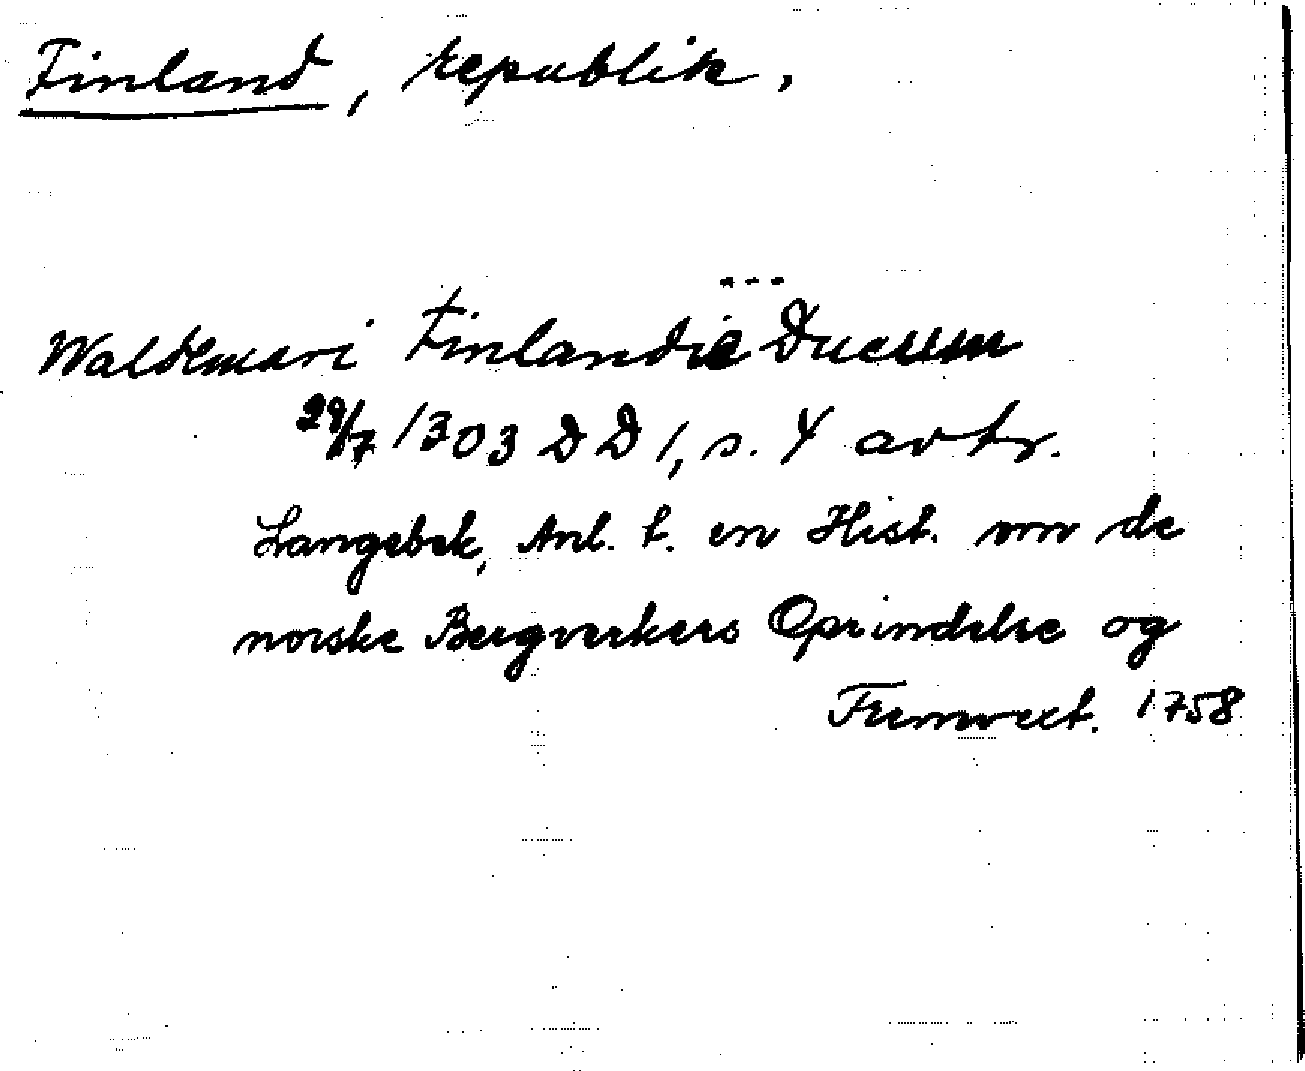 Finland, republik,
Waldemari Finlandie ... Ducum
29/7 1303 DD 1, s. 4 avtr.
Langebek, Anl. t. en Hist. om de
norske Bergverkers Oprindelse og
Fremvext. 1758